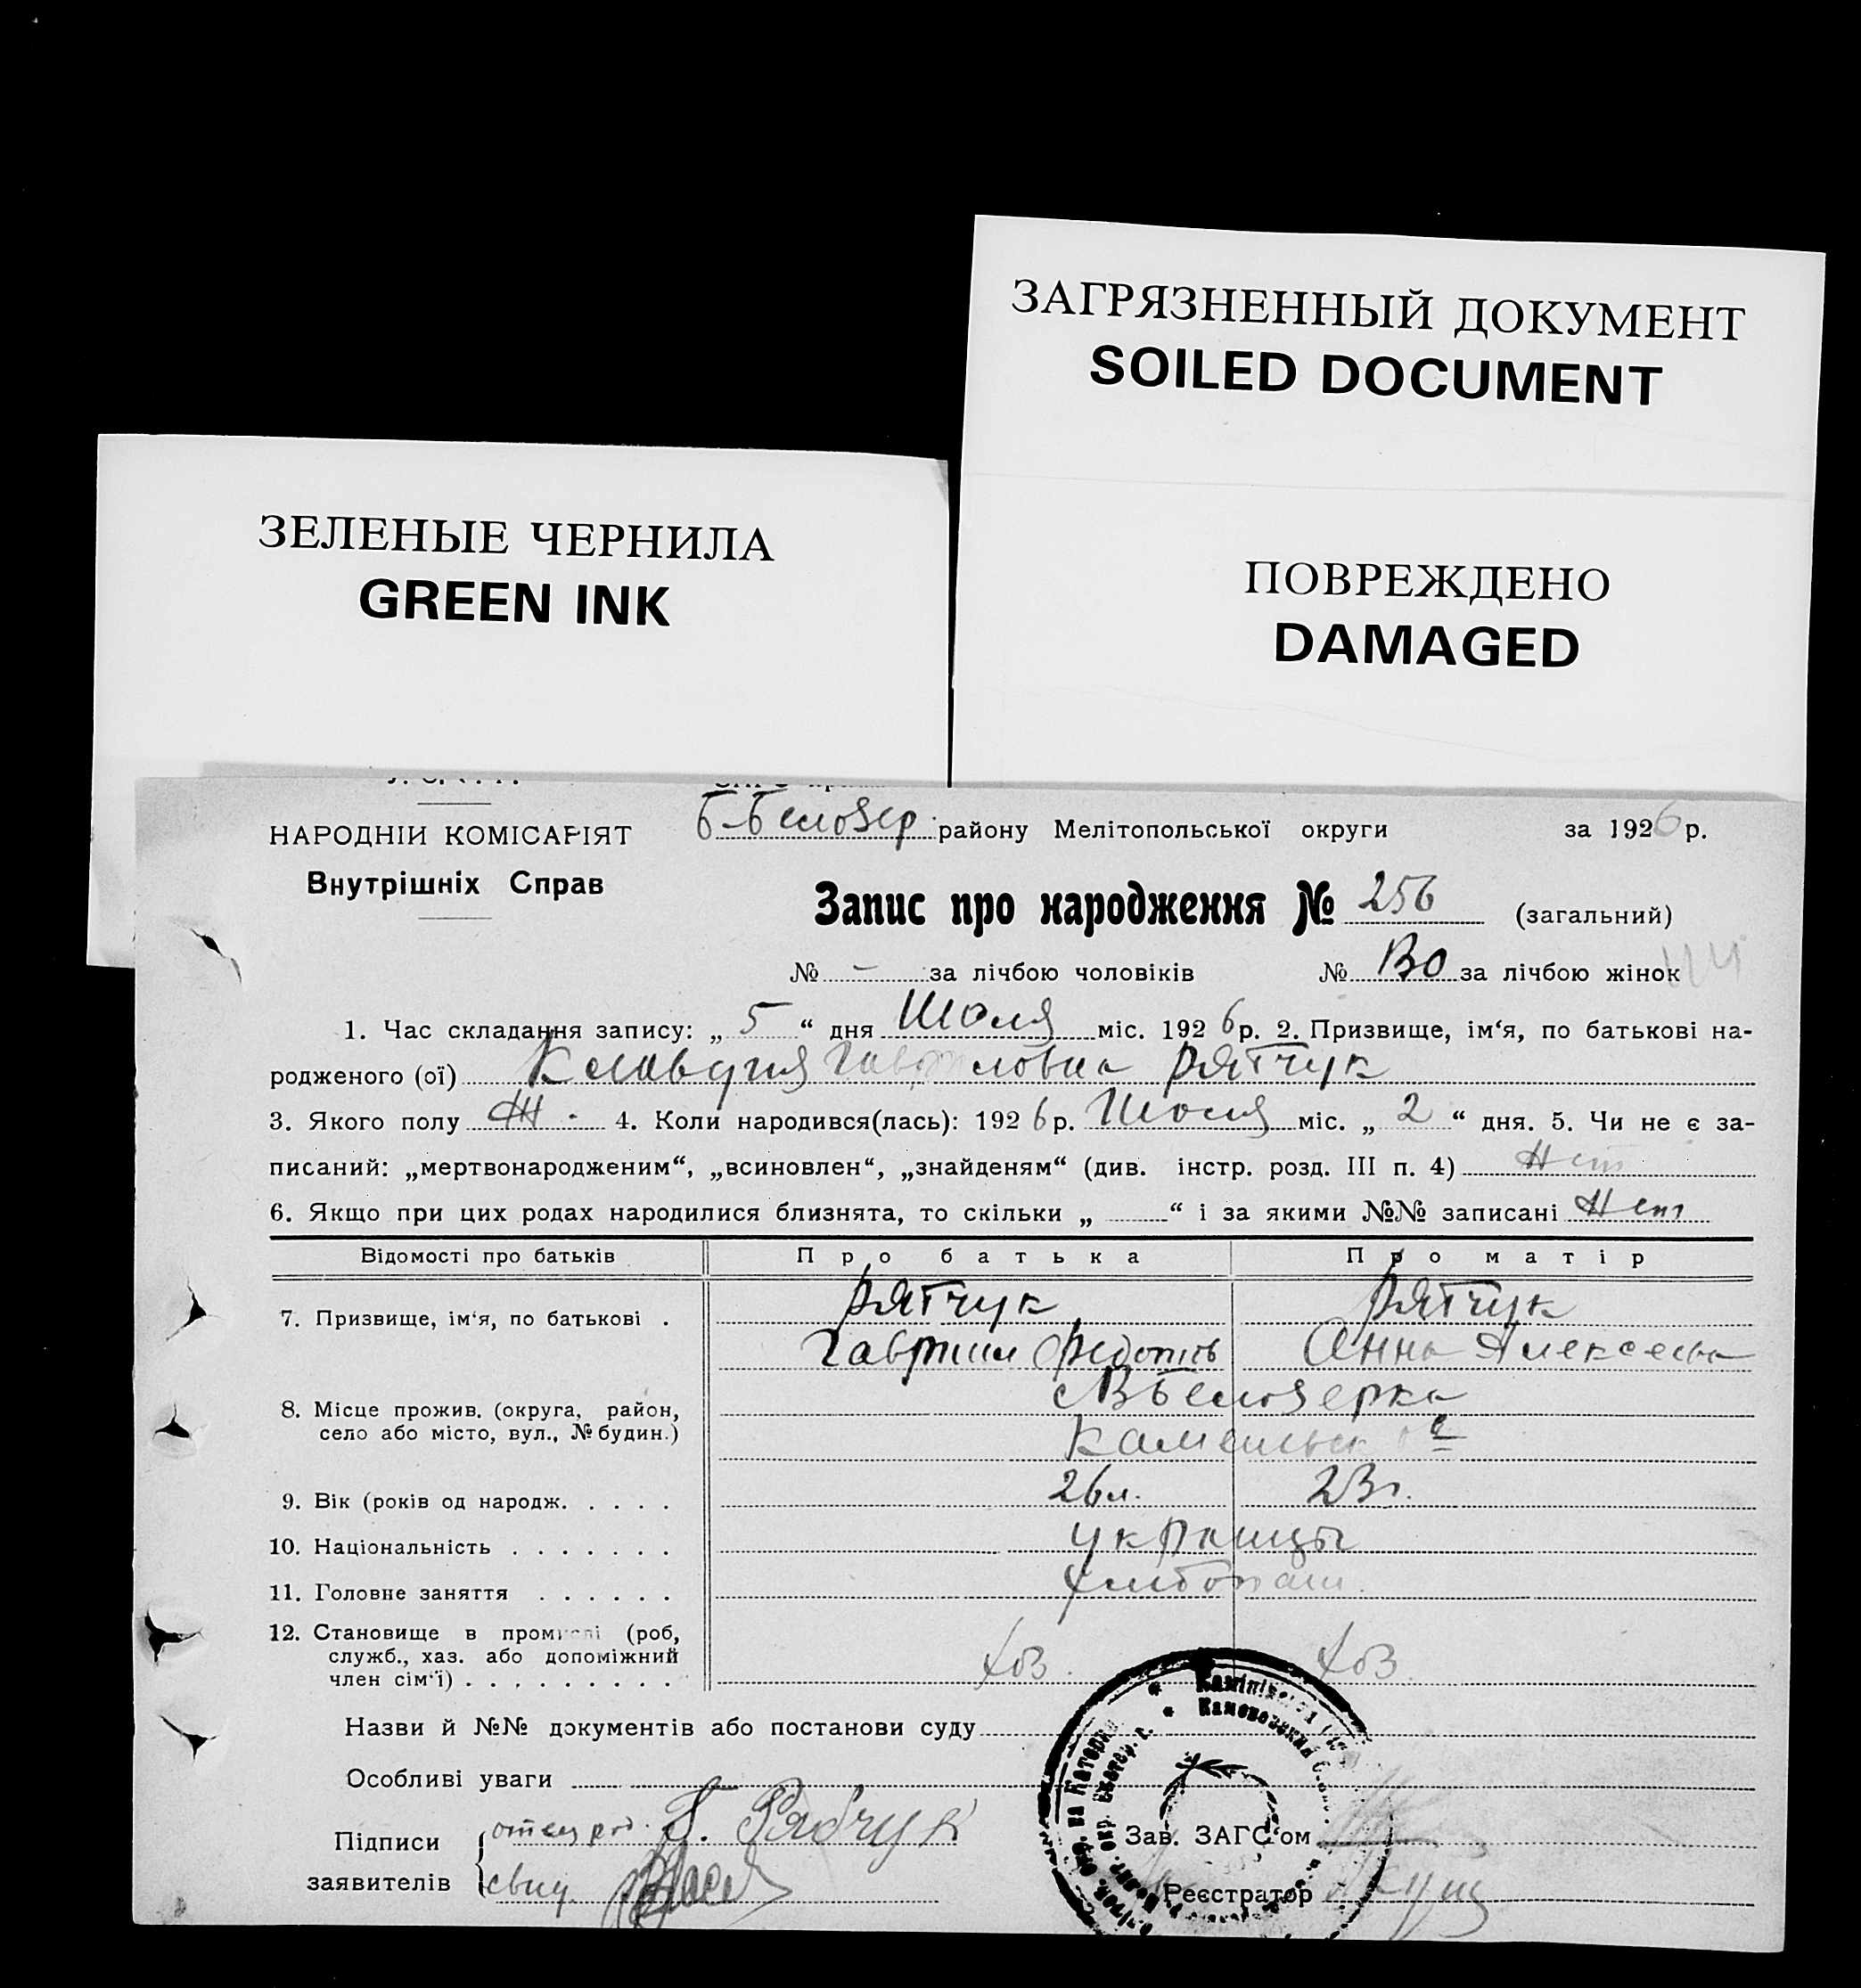 ЗАГРЯЗНЕННЫЙ ДОКУМЕНТ
SOILED DOCUMENT
ЗЕЛЕНЫЕ ЧЕРНИЛА
GREEN INK
ПОВРЕЖДЕНО
DAMAGED
НАРОДНІЙ КОМІСАРІЯТ
Внутрішніх Справ
Б-Белозер. району Мелітопольської округи за 1926 р.
Запис про народження № 256 (загальний)
№ - за лічбою чоловіків № за лічбою жінок
1. Час складання запису: „ 5 “ дня Июля міс. 192 6 р. 2. Призвище, ім‘я, по батькові на-
родженого (ої) Клавдия Гавриловна Рятчук
3. Якого полу Ж. 4. Коли народився(лась): 192 6 р. Июля міс. „ 2 “ дня. 5. Чи не є за-
писаний: „мертвонародженим“, „всиновлен“, „знайденям“ (див. інстр. розд. III п. 4) Нет
6. Якщо при цих родах народилися близнята, то скільки „ “ і за якими №№ записані Нет
Відомості про батьків Про батька Про матір
7. Призвище, ім‘я, по батькові . Рятчук Рятчук
Гаврил Федотов Анна Алексеевн
8. Місце прожив. (округа, район, Белозерка
село або місто, вул., № будин.)
9. Вік (років од народж. . . . . 26 л. 23 г.
10. Національність . . . . . . . украинцы
11. Головне заняття . . . . . . хлебопаш.
12. Становище в промислі (роб,
служб., хаз. або допоміжний
член сім‘ї) . . . . . . . . . хоз. хоз.
Назви й №№ документів або постанови суду
Особливі уваги
Підписи отец род. Г. Рябчук
Зав. ЗАГС‘ом
заявителів свид.
Реєстратор